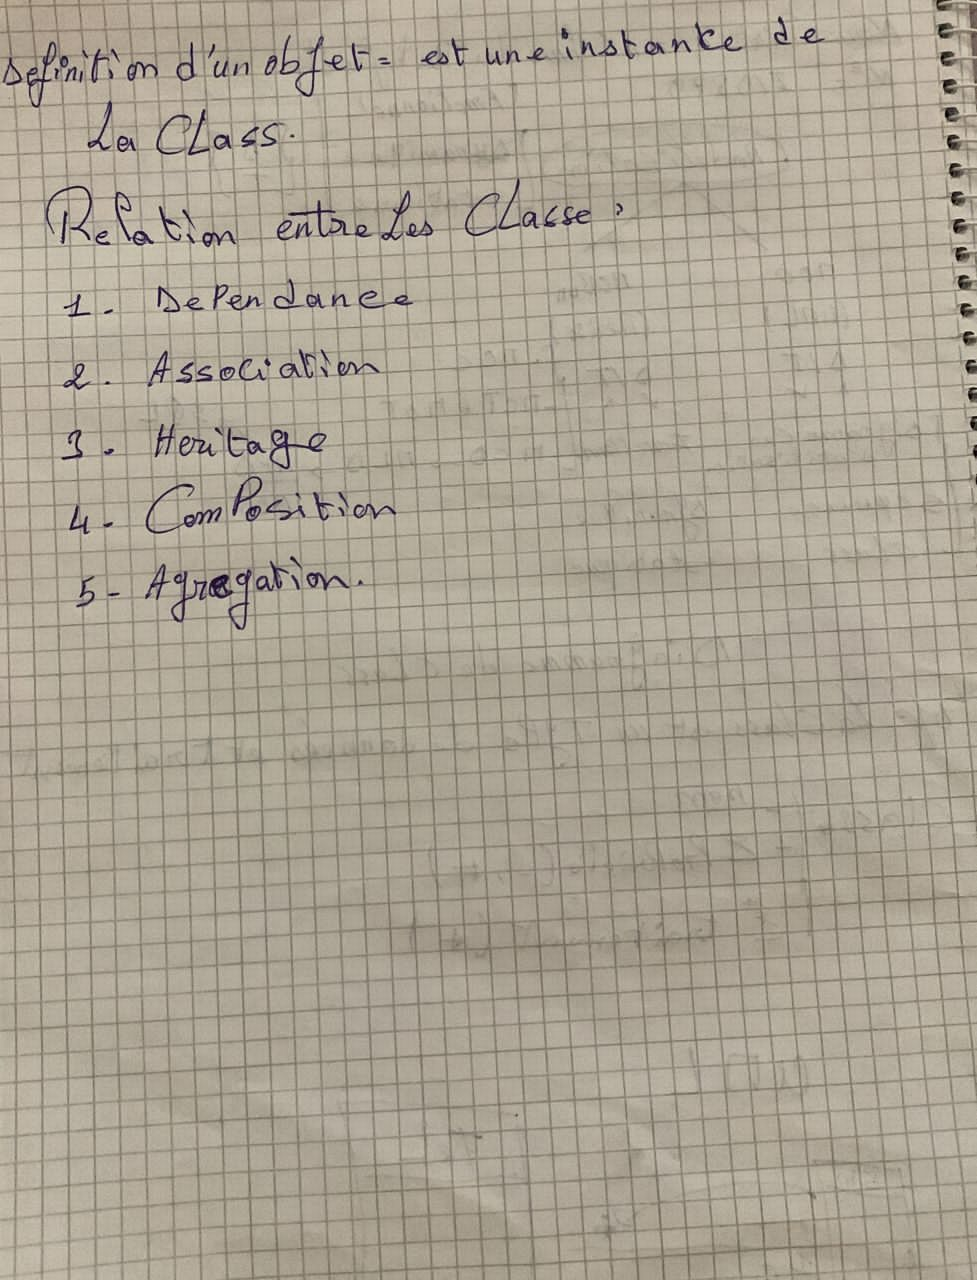 Definition d'un objet = est une instance de
La CLass.
Relation entre Les CLasse :
1. DePendance
2. Association
3. Heritage
4- ComPosition
5- Agregation.